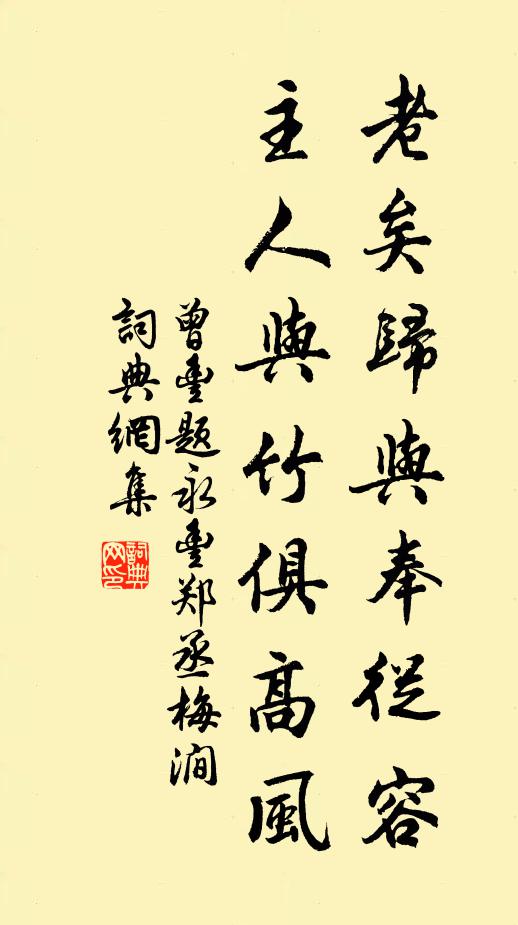 老矣歸與奉從容
主人與竹俱高風
曾豐題永豐郑丞梅澗
詞典網集
詞典网印